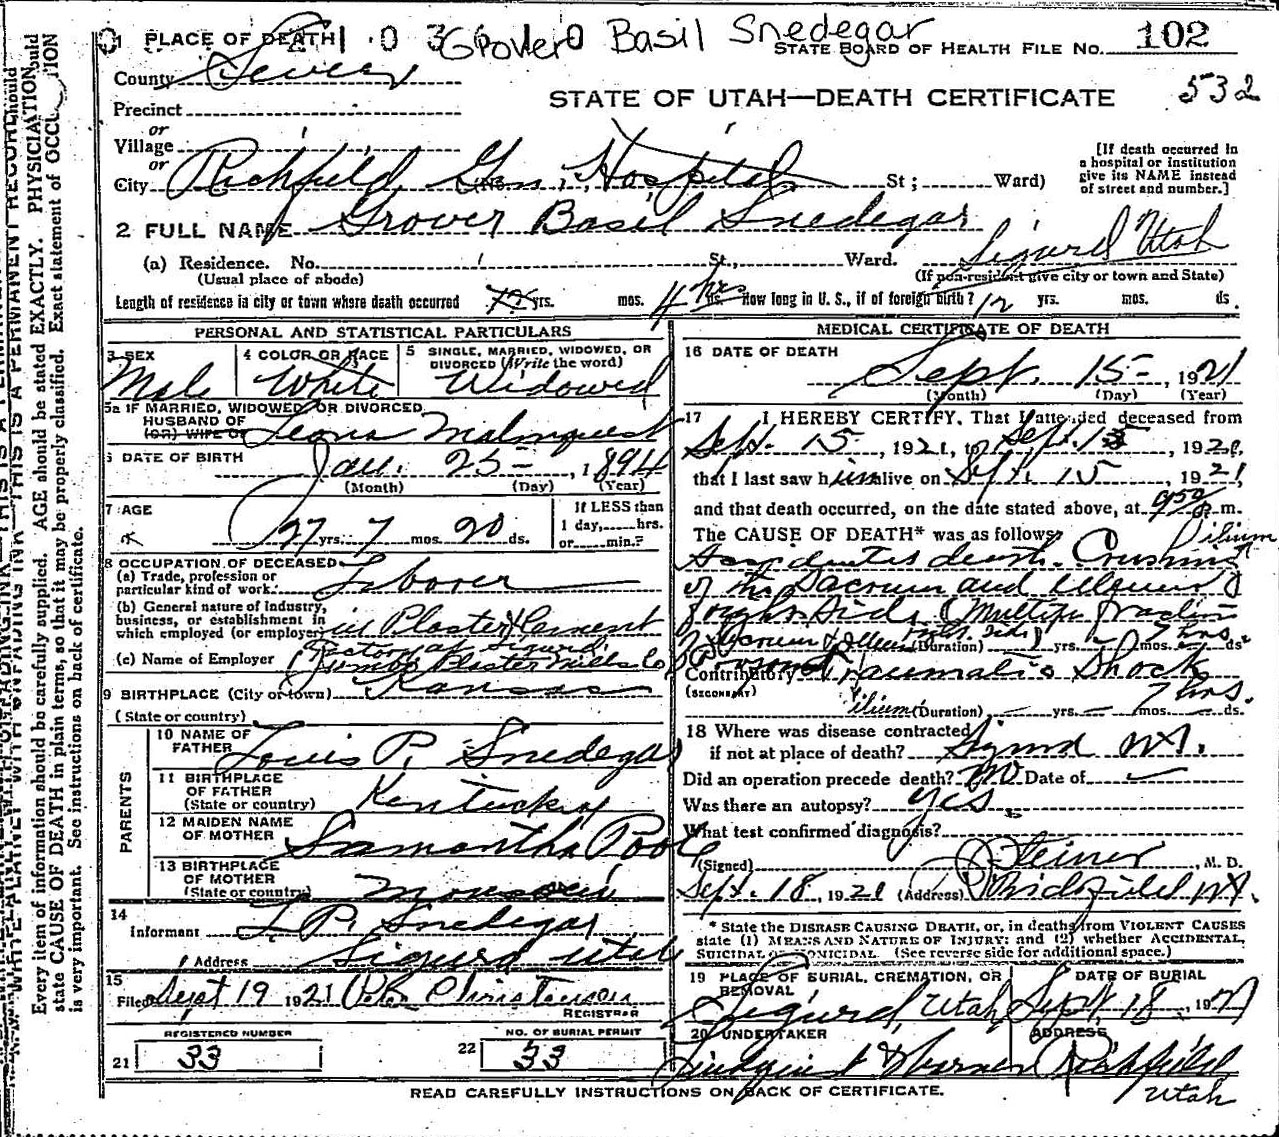 1 PLACE OF DEATH 2 1 0 3 Grover Basil Snedegar STATE BOARD OF HEALTH FILE NO. 102
County Sevier
532
STATE OF UTAH—DEATH CERTIFICATE
Precinct
or
Village
or
City Richfield Gen. Hospital St; Ward)
[If death occurred in a hospital or institution give its NAME instead of street and number.]
2 FULL NAME Grover Basil Snedegar
(a) Residence. No. St., Ward. Sigurd Utah
(Usual place of abode) (If non-resident give city or town and State)
Length of residence in city or town where death occurred yrs. mos. 4 hrs ds. How long in U. S., if of foreign birth? yrs. mos. ds.
PERSONAL AND STATISTICAL PARTICULARS
3 SEX Male
4 COLOR OR RACE White
5 SINGLE, MARRIED, WIDOWED, OR DIVORCED (Write the word) Widowed
5a IF MARRIED, WIDOWED, OR DIVORCED
HUSBAND OF
(OR) WIFE OF Leona Malmquest
6 DATE OF BIRTH Jan. 25 - , 1894
(Month) (Day) (Year)
7 AGE
27 yrs. 7 mos. 20 ds.
If LESS than
1 day, hrs.
or min.?
8 OCCUPATION OF DECEASED
(a) Trade, profession or
particular kind of work. Laborer
(b) General nature of industry,
business, or establishment in
which employed (or employer) in Plaster & Cement
Factory at Sigurd
(c) Name of Employer Jumbo Plaster Mills Co
9 BIRTHPLACE (City or town) Kansas
(State or country)
PARENTS
10 NAME OF FATHER Louis P. Snedegar
11 BIRTHPLACE OF FATHER (State or country) Kentucky
12 MAIDEN NAME OF MOTHER Samantha Poole
13 BIRTHPLACE OF MOTHER (State or country)
14
Informant L P. Snedegar
Address Sigurd Utah
15
Filed Sept 19 1921 Peter Christensen
REGISTRAR
REGISTERED NUMBER
21 33
NO. OF BURIAL PERMIT
22 33
MEDICAL CERTIFICATE OF DEATH
16 DATE OF DEATH
Sept. 15 - , 1921
(Month) (Day) (Year)
17 I HEREBY CERTIFY, That I attended deceased from
Sept. 15 , 1921, to Sept. 15 , 1921,
that I last saw him alive on Sept. 15 , 1921,
and that death occurred, on the date stated above, at 9 50 m.
The CAUSE OF DEATH* was as follows: Ilium
death. Crushing
of the Sacrum and Illeum of
right side (Multiple fraction
of Sacrum & Illeum right side)
(Duration) yrs. mos. 7 hrs. ds.
Contributory Traumatic Shock
(SECONDARY) 7 hrs.
ilium (Duration) yrs. mos. ds.
18 Where was disease contracted
if not at place of death? Sigurd Ut.
Did an operation precede death? no Date of
Was there an autopsy? yes.
What test confirmed diagnosis?
(Signed) Steiner , M. D.
Sept. 18 , 1921 (Address) Richfield Ut.
* State the DISEASE CAUSING DEATH, or, in deaths from VIOLENT CAUSES
state (1) MEANS AND NATURE OF INJURY; and (2) whether ACCIDENTAL,
SUICIDAL or HOMICIDAL. (See reverse side for additional space.)
19 PLACE OF BURIAL, CREMATION, OR REMOVAL
Sigurd, Utah
DATE OF BURIAL
Sept. 18 , 1921
20 UNDERTAKER
ADDRESS
Richfield
Utah
READ CAREFULLY INSTRUCTIONS ON BACK OF CERTIFICATE.
Every item of information should be carefully supplied. AGE should be stated EXACTLY. PHYSICIANS should
state CAUSE OF DEATH in plain terms, so that it may be properly classified. Exact statement of OCCUPATION
is very important. See instructions on back of certificate.